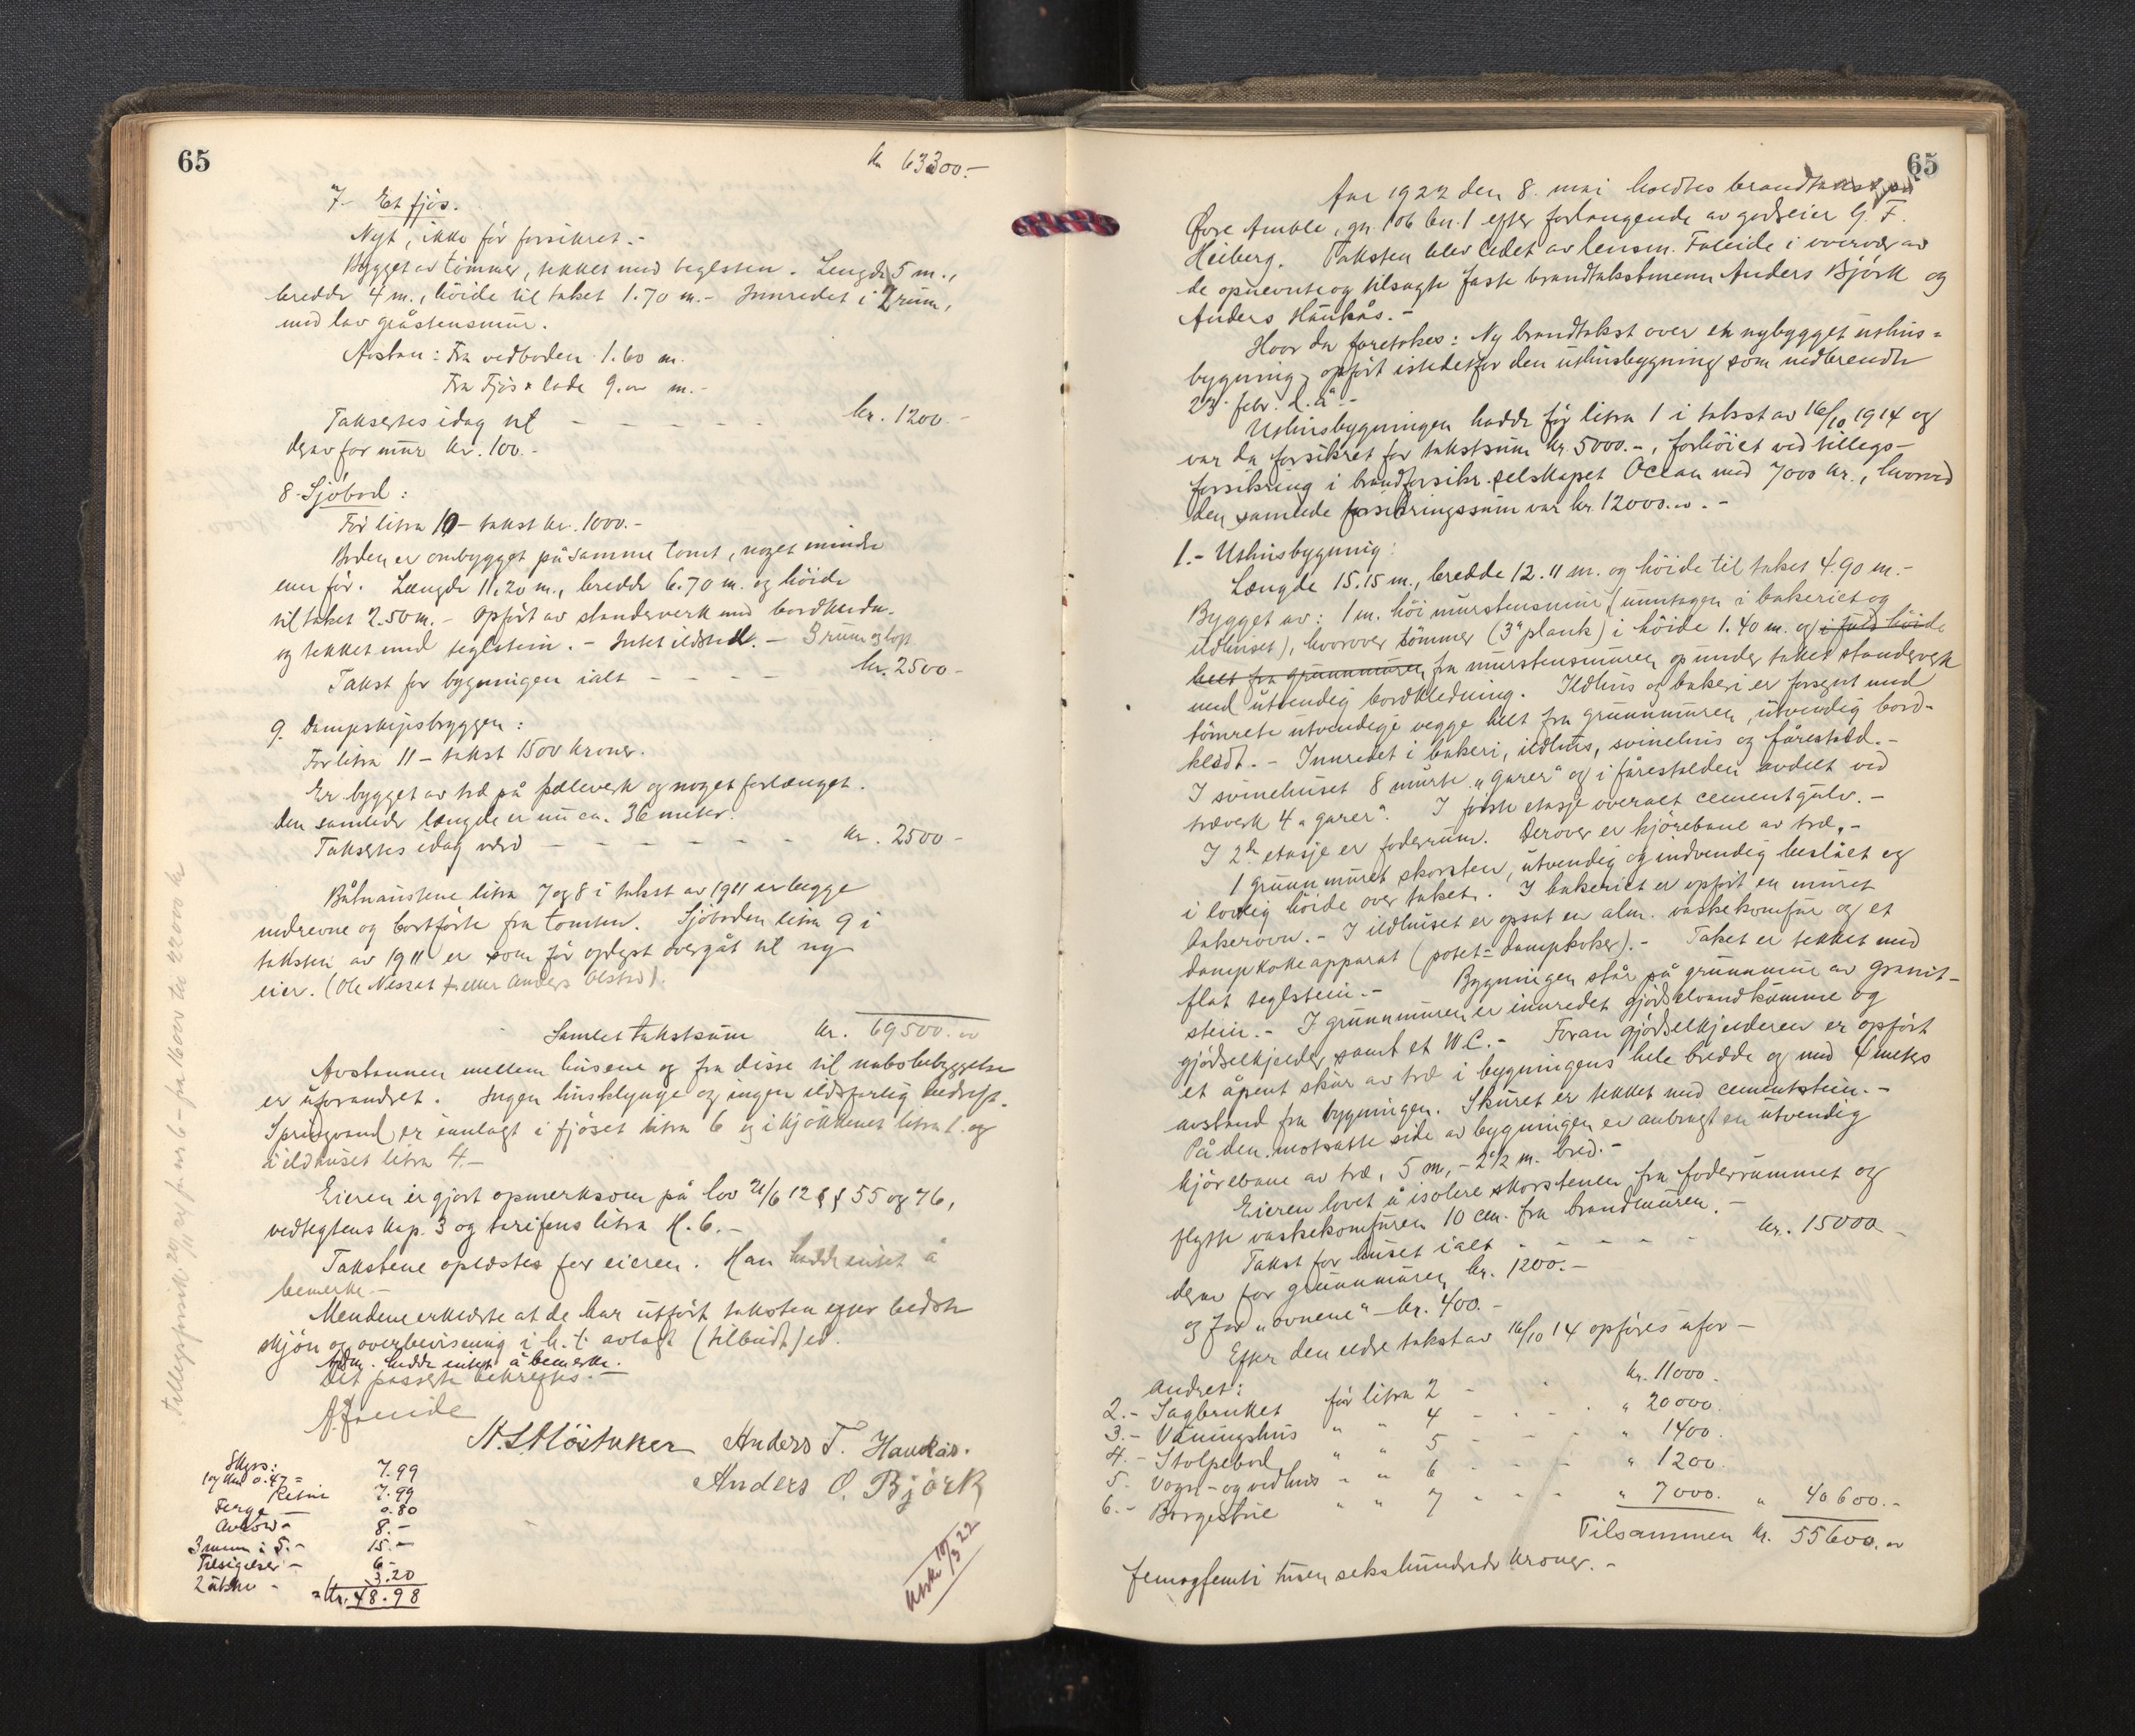 65
kr 63300.-
7. Et fjøs.
Nyt, ikke før forsikret.-
Bygget av tømmer, tekket med teglsten. Lengde 5 m.,
bredde 4 m., høide til taket 1.70 m.- Innredet i 2 rum,
med lav gråstensmur.
Avstan: Fra vedboden 1.60 m.
Fra Fjøs & lade 9.00 m.-
Takseres idag til - - - - - kr. 1200-
derav for mur kr. 100.-
8. Sjøbod:
Før litra 10 - takst kr. 1000.-
Boden er ombygget på samme tomt, noget mindre
enn før. Længde 11.20 m., bredde 6.70 m. og høide
til taket 2.50 m.- Opført av standerverk med bordklædn.
og tekket med teglstein.- Intet ildsted.- 3 rum og loft
Takst for bygningen ialt - - - - kr. 2500-
9. Dampskipsbryggen:
Før litra 11 - takst 1500 kroner.
Er bygget av træ på pæleverk og noget forlænget.
den samlede længde er nu ca. 36 meter.
Takseres idag værd - - - - - - kr. 2500-
Båtnaustene litra 7 og 8 i takst av 1911 er begge
nedrevne og bortførte fra tomten. Sjøboden litra 9 i
taksten av 1911 er som før oplyst overgåt til ny
eier. (Ole Nessat f. eller Anders Olstad).
Samlet takstsum kr. 69500.00
Avstannen mellem husene og fra disse til nabobebyggelse
er uforandret. Ingen husklynge og ingen ildsfarlig bedrift.
Springvand er innlagt i fjøset litra 6 og i kjøkkenet litra 1. og
i ildhuset litra 4.-
Eieren er gjort opmerksom på lov 21/6 12 §§ 55 og 76,
vedtegtens kap. 3 og tarifens litra K. 6.-
Takstene oplæstes for eieren. Han hadde intet å
bemerke.-
Mendene erklærte at de har utført taksten efter bedste
skjøn og overbevisning i h. t. avlagt (tilbudt) ed.
Adm. hadde intet å bemerke.
Det passerte bekreftes.-
A. Faleide
Anders T. Haukås.
Anders O. Bjørk
Skyss:
17 km 0.47 = 7.99
Retur 7.99
Ferge - 0.80
8.-
3 menn à 5.- 15.-
Tilsigelser - 6.-
2 - 3.20
= Kr. 48.98
Utskr. 10/3 22
Tilleggsforsik. 20/11 24 for nr 6 - fra 16000 til 22000 kr
65
Aar 1922 den 8. mai holdtes brandtakst på
Øvre Amble, gn. 106 bn. 1 efter forlangende av godseier G. F.
Heiberg. Taksten blev ledet av lensm. Faleide i overvær av
de opnevnte og tilsagte faste brandtakstmenn Anders Bjørk og
Anders Haukås.-
Hvor da foretokes: Ny brandtakst over en nybygget uthus=
bygning, opført istedetfor den uthusbygning som nedbrendte
23. febr. d. å.-
Uthusbygningen hadde før litra 1 i takst av 16/10 1914 og
var da forsikret for takstsum kr. 5000.-, forhøiet ved tillegs-
forsikring i brandforsikr.selskapet Ocean med 7000 kr., hvorved
den samlede forsikringssum var kr. 12000.00.-
1.- Uthusbygning:
Længde 15.15 m., bredde 12.11 m. og høide til taket 4.90 m.-
Bygget av: 1 m. høi murstensmur (unntagen i bakeriet og
ildhuset), hvorover tømmer (3" plank) i høide 1.40 m. og i fuld høide
helt fra grunnmuren fra murstensmuren op under taket standerverk
med utvendig bordkledning. Ildhus og bakeri er forsynt med
tømrete utvendige vegge helt fra grunnmuren, utvendig bord-
kledt.- Innredet i bakeri, ildhus, svinehus og fårestald.-
I svinehuset 8 murte "garer" og i fårestalden avdelt ved
træverk 4 "garer". I første etasje overalt cementgulv.-
I 2de etasje er foderrum. Derover er kjørebane av træ.-
1 grunnmuret skorsten, utvendig og indvendig beslået og
i lovlig høide over taket. I bakeriet er opført en muret
bakerovn.- I ildhuset er opsat en alm. vaskekomfur og et
dampkokeapparat (potet=dampkoker).- Taket er tekket med
flat teglstein.- Bygningen står på grunnmur av granit-
stein.- I grunnmuren er innredet gjødselvandkumme og
gjødselkjelder, samt et W.C.- Foran gjødselkjelderen er opført
et åpent skur av træ i bygningens hele bredde og med 4 meters
avstand fra bygningen. Skuret er tekket med cementstein.-
På den motsatte side av bygningen er anbragt en utvendig
kjørebane av træ, 5 m, - 2 1/2 m. bred.-
Eieren lovet å isolere skorstenen fra foderrummet og
flytte vaskekomfuren 10 cm. fra brandmuren.-
Takst for huset ialt - - - - - kr. 15000-
derav for grunnmuren kr. 1200.-
og for "ovnene" - kr. 400.-
Efter den eldre takst av 16/10 14 opføres ufor-
andret:
2.- Sagbruket før litra 2 - - kr. 11000.-
3.- Våningshus " " 4 - - - " 20000.
4.- Stolpebod " " 5 - - - " 1400.
5. Vogn- og vedhus " " 6 - - - " 1200.
6.- Borgestue " " 7 - - - " 7000. " 40600.-
Tilsammen kr. 55600.00
femogfemti tusen sekshundrede kroner.-